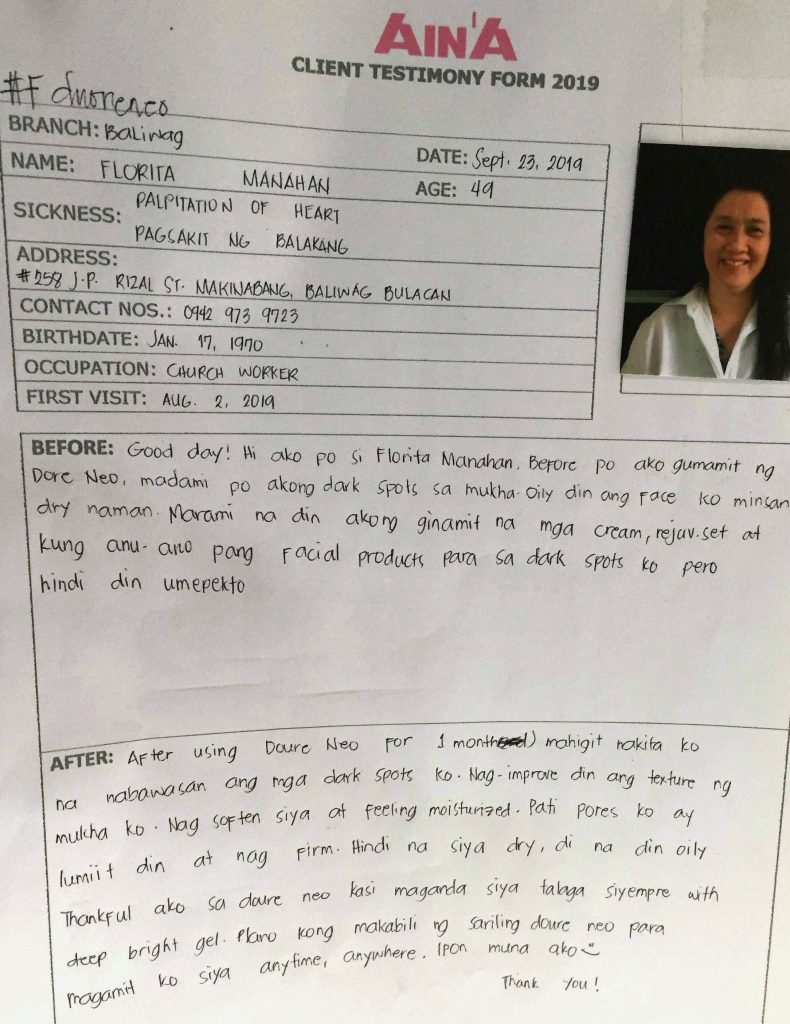 AIN'A
CLIENT TESTIMONY FORM 2019
BRANCH: Baliwag
DATE: Sept. 23, 2019
NAME: FLORITA MANAHAN
AGE: 49
SICKNESS: PALPITATION OF HEART
PAGSAKIT NG BALAKANG
ADDRESS:
#258 J.P. RIZAL ST. MAKINABANG, BALIWAG BULACAN
CONTACT NOS.: 0942 973 9723
BIRTHDATE: JAN. 17, 1970
OCCUPATION: CHURCH WORKER
FIRST VISIT: AUG. 2, 2019
BEFORE: Good day! Hi ako po si Florita Manahan. Before po ako gumamit ng
Dore Neo, madami po akong dark spots sa mukha. Oily din ang face ko minsan
dry naman. Marami na din akong ginamit na mga cream, rejuv.set at
kung anu-ano pang facial products para sa dark spots ko pero
hindi din umepekto
AFTER: After using Doure Neo for 1 month mahigit nakita ko
na nabawasan ang mga dark spots ko. Nag-improve din ang texture ng
mukha ko. Nag soften siya at feeling moisturized. Pati pores ko ay
lumiit din at nag firm. Hindi na siya dry, di na din oily.
Thankful ako sa doure neo kasi maganda siya talaga siyempre with
deep bright gel. Plano kong makabili ng sariling doure neo para
magamit ko siya anytime, anywhere. Ipon muna ako
Thank you!